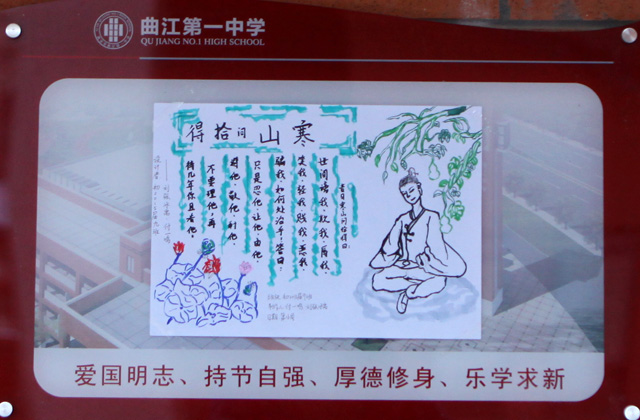 曲江第一中学
QU JIANG NO.1 HIGH SCHOOL
寒山问拾得
昔日寒山问拾得曰:
世间谤我、欺我、辱我、
笑我、轻我、贱我、恶我
骗我、如何处治乎?答曰:
只是忍他、让他、由他
敬他、
不要理他、再
待几年你且看他。
设计者
爱国明志、持节自强、厚德修身、乐学求新